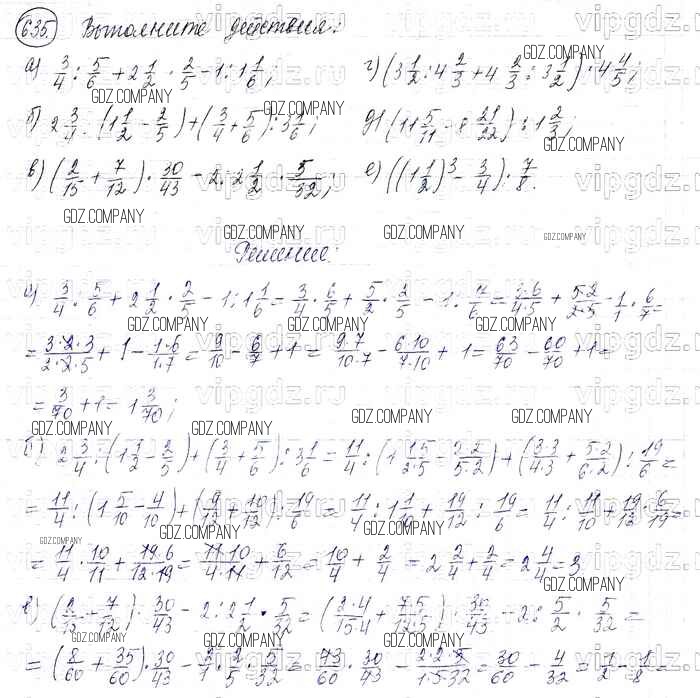 635. Выполните действия:
а) 3/4 : 5/6 + 2 1/2 · 2/5 − 1 : 1 1/6; г) (3 1/2 : 4 2/3 + 4 2/3 : 3 1/2) · 4 4/5;
GDZ.COMPANY
б) 2 3/4 : (1 1/2 − 2/5) + (3/4 + 5/6) : 3 1/6; д) (11 5/11 − 8 21/22) : 1 2/3;
GDZ.COMPANY
в) (2/15 + 7/12) · 30/43 − 2 : 2 1/2 · 5/32; е) ((1 1/2)³ − 3/4) · 7/8.
GDZ.COMPANY
Решение:
а) 3/4 : 5/6 + 2 1/2 · 2/5 − 1 : 1 1/6 = 3/4 · 6/5 + 5/2 · 2/5 − 1 : 7/6 = 3·6/4·5 + 5·2/2·5 − 1/1 · 6/7 =
= 3·2·3/2·2·5 + 1 − 1·6/1·7 = 9/10 − 6/7 + 1 = 9·7/10·7 − 6·10/7·10 + 1 = 63/70 − 60/70 + 1 =
= 3/70 + 1 = 1 3/70;
б) 2 3/4 : (1 1/2 − 2/5) + (3/4 + 5/6) : 3 1/6 = 11/4 : (1 1·5/2·5 − 2·2/5·2) + (3·3/4·3 + 5·2/6·2) : 19/6 =
= 11/4 : (1 5/10 − 4/10) + (9/12 + 10/12) : 19/6 = 11/4 : 1 1/10 + 19/12 : 19/6 = 11/4 : 11/10 + 19/12 · 6/19 =
= 11/4 · 10/11 + 19·6/12·19 = 11·10/4·11 + 6/12 = 10/4 + 2/4 = 2 2/4 + 2/4 = 2 4/4 = 3
в) (2/15 + 7/12) · 30/43 − 2 : 2 1/2 · 5/32 = (2·4/15·4 + 7·5/12·5) · 30/43 − 2 : 5/2 · 5/32 =
= (8/60 + 35/60) · 30/43 − 2/1 · 2/5 · 5/32 = 43/60 · 30/43 − 2·2·5/1·5·32 = 30/60 − 4/32 = 1/2 − 1/8 =